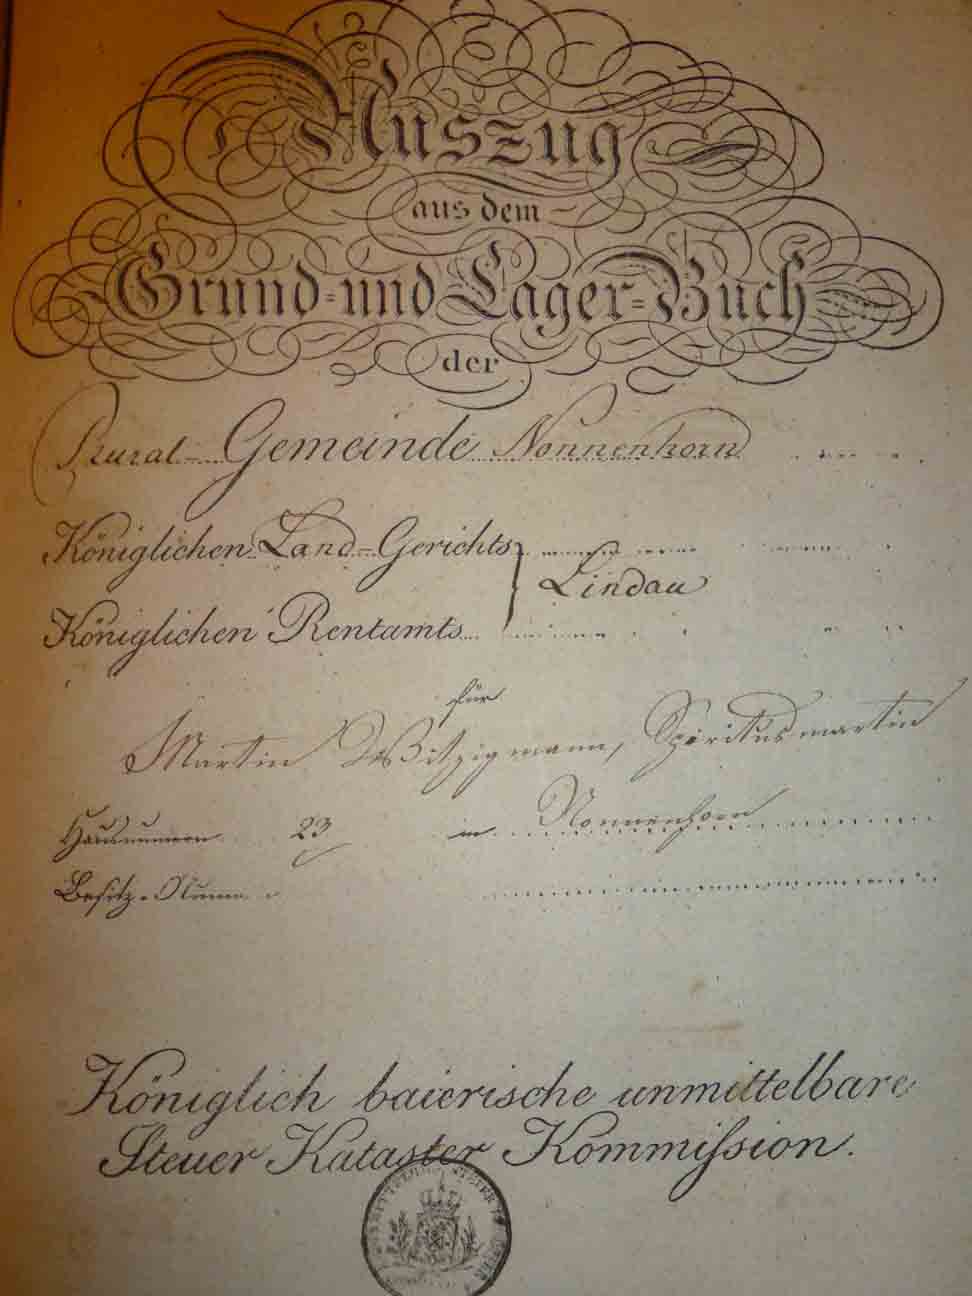 Auszug
aus dem
Grund- und Lager-Buch
der
Rural-Gemeinde Nonnenhorn
Königlichen Land-Gerichts
Lindau
Königlichen Rentamts
für
Martin Witzigmann, Spiritusmartin
Hausnummern 23 in Nonnenhorn
Besitz-Numm
Königlich baierische unmittelbare
Steuer Kataster Kommiſsion.
STEUER